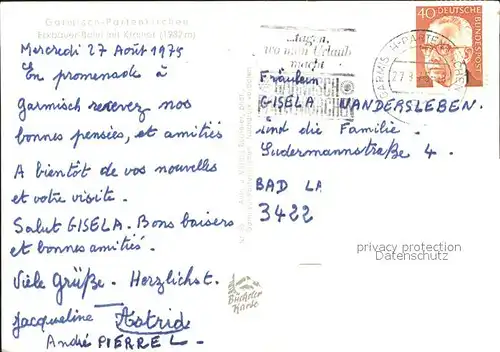 Garmisch-Partenkirchen
Eckbauer-Bahn mit Kramer (1982 m)
Mercredi 27 Août 1975
En promenade à
Garmisch recevez nos
bonnes pensées, et amitiés
A bientôt de vos nouvelles
et votre visite.
Salut GISELA. Bons baisers
et bonnes amitiés.
Viele Grüße. Herzlichst.
Jacqueline Astride
André PIERREL.
sagen,
wo man Urlaub
macht
GARMISCH
40 DEUTSCHE
BUNDESPOST
GARMISCH-PARTENKIRCHEN
27.8.
Fräulein
GISELA WANDERSLEBEN.
und die Familie.
Sudermannstraße 4.
BAD LA
3422
privacy protection
Veryimportantlot.com
Bücheler
Karte